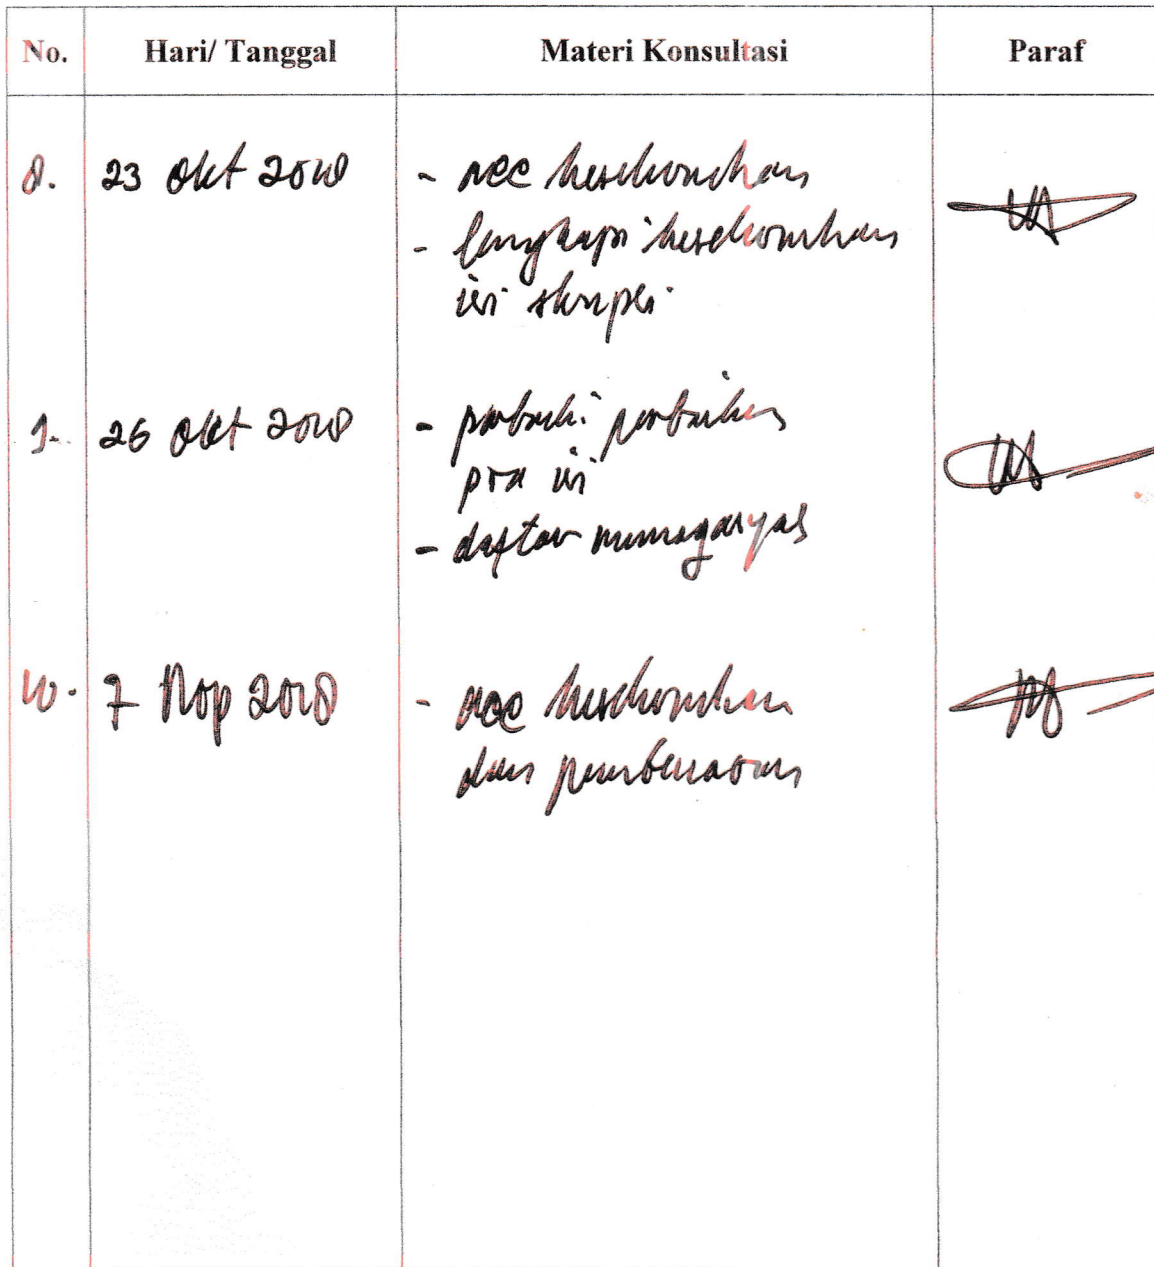 No. Hari/ Tanggal Materi Konsultasi Paraf
8. 23 Okt 2018 - acc keseluruhan
- lengkapi keseluruhan
isi skripsi
9. 26 Okt 2018 - perbaiki perbaikan
pra isi
- daftar munaqasyah
10. 7 Nop 2018 - acc keseluruhan
dan